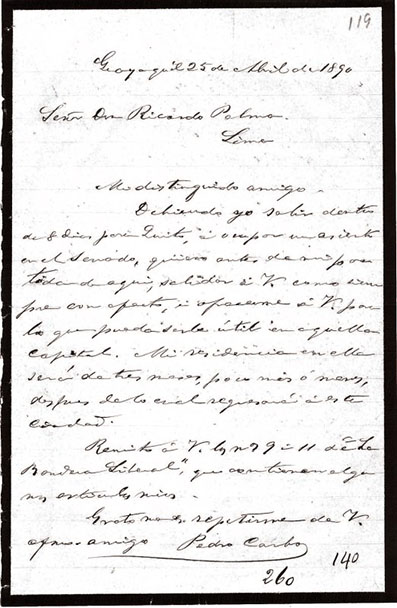 119
Guayaquil 25 de Abril de 1890
Señor Don Ricardo Palma.
Lima
Mi distinguido amigo.
Debiendo yo salir dentro
de 8 dias para Quito, á ocupar un asiento
en el Senado, quiero antes de mi par
tida de aqui, saludar á V. como siem
pre con afecto, i ofrecerme á V. para
lo que pueda serle útil en aquella
capital. Mi residencia en ella
será de tres meses, poco más ó menos,
despues de lo cual regresaré á esta
ciudad.
Remito á V. los nos 9 i 11 de "La
Bandera Liberal", que contienen algu
nos articulos mios.
Grato me es repetirme de V.
afmo. amigo Pedro Carbo
140
260